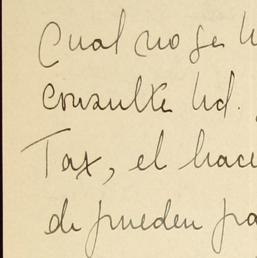 Cual no se
consulte Ud.
Tax, el hace
de pueden